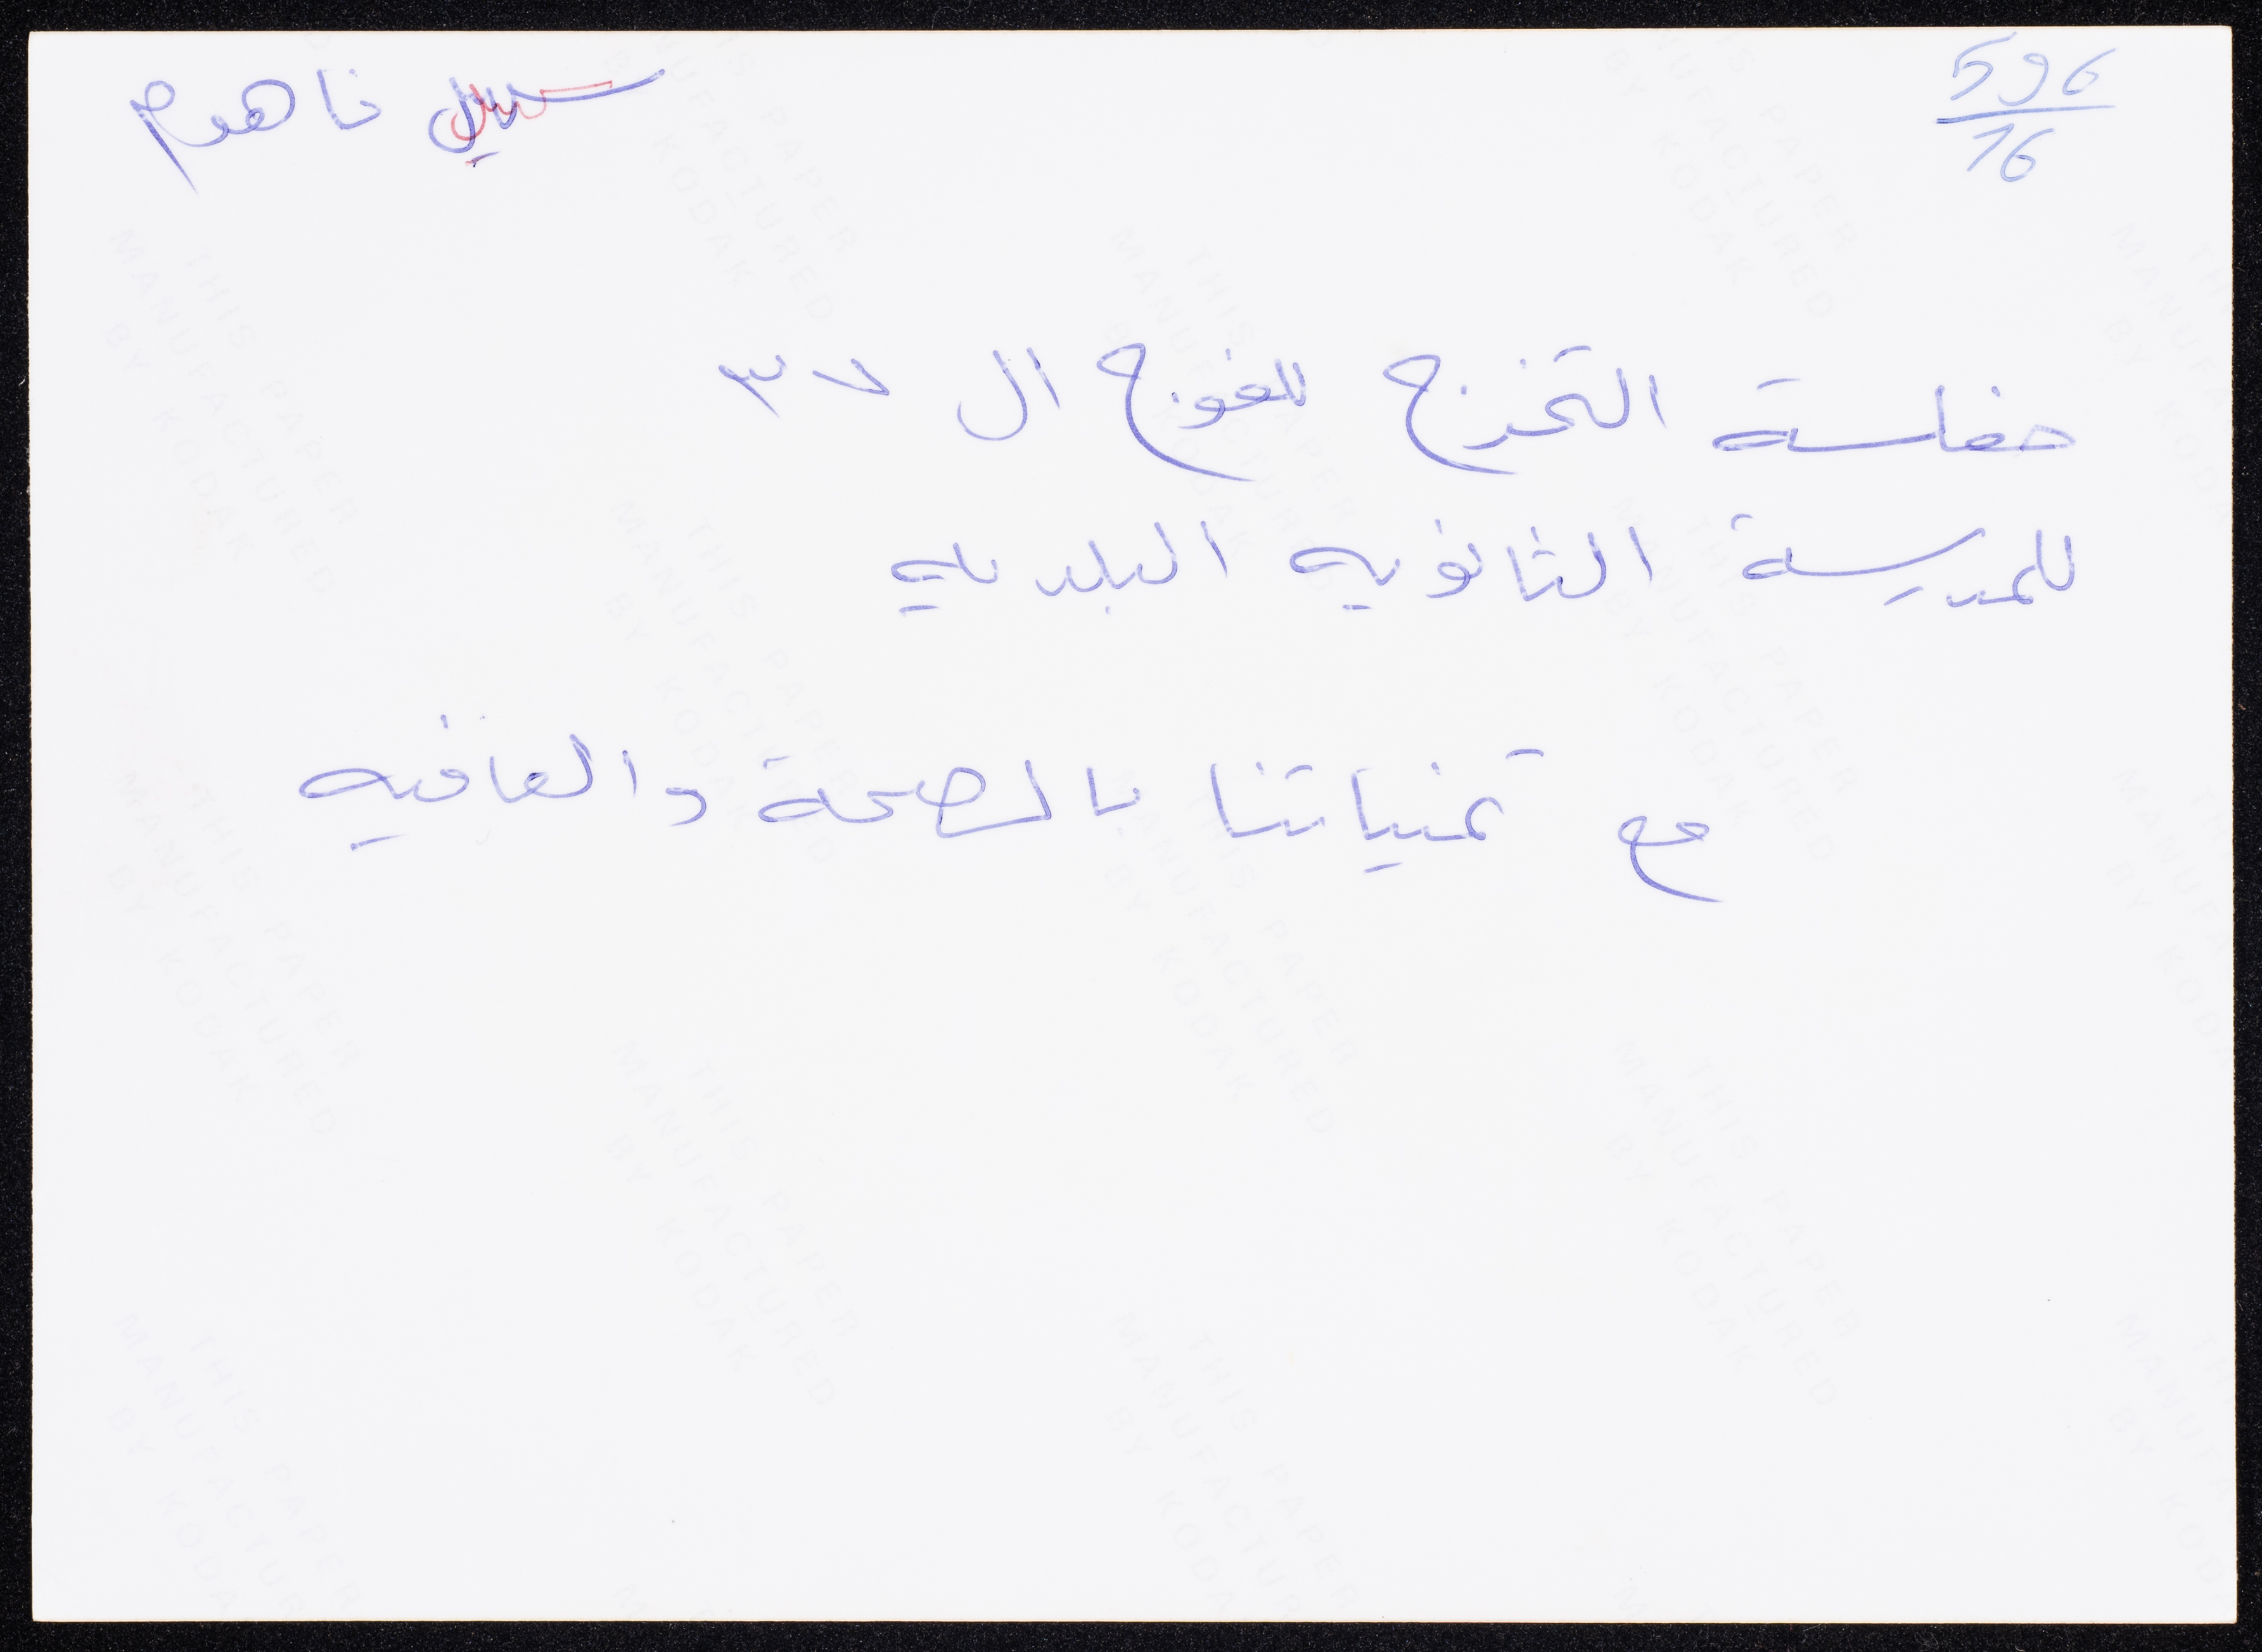 596
16
سهيل ناهوم
حفلة التخرج للفوج ال ٣٧
للمدرسة الثانويه البلديه
مع تمنياتنا بالصحة والعافيه
THIS PAPER
MANUFACTURED
BY KODAK